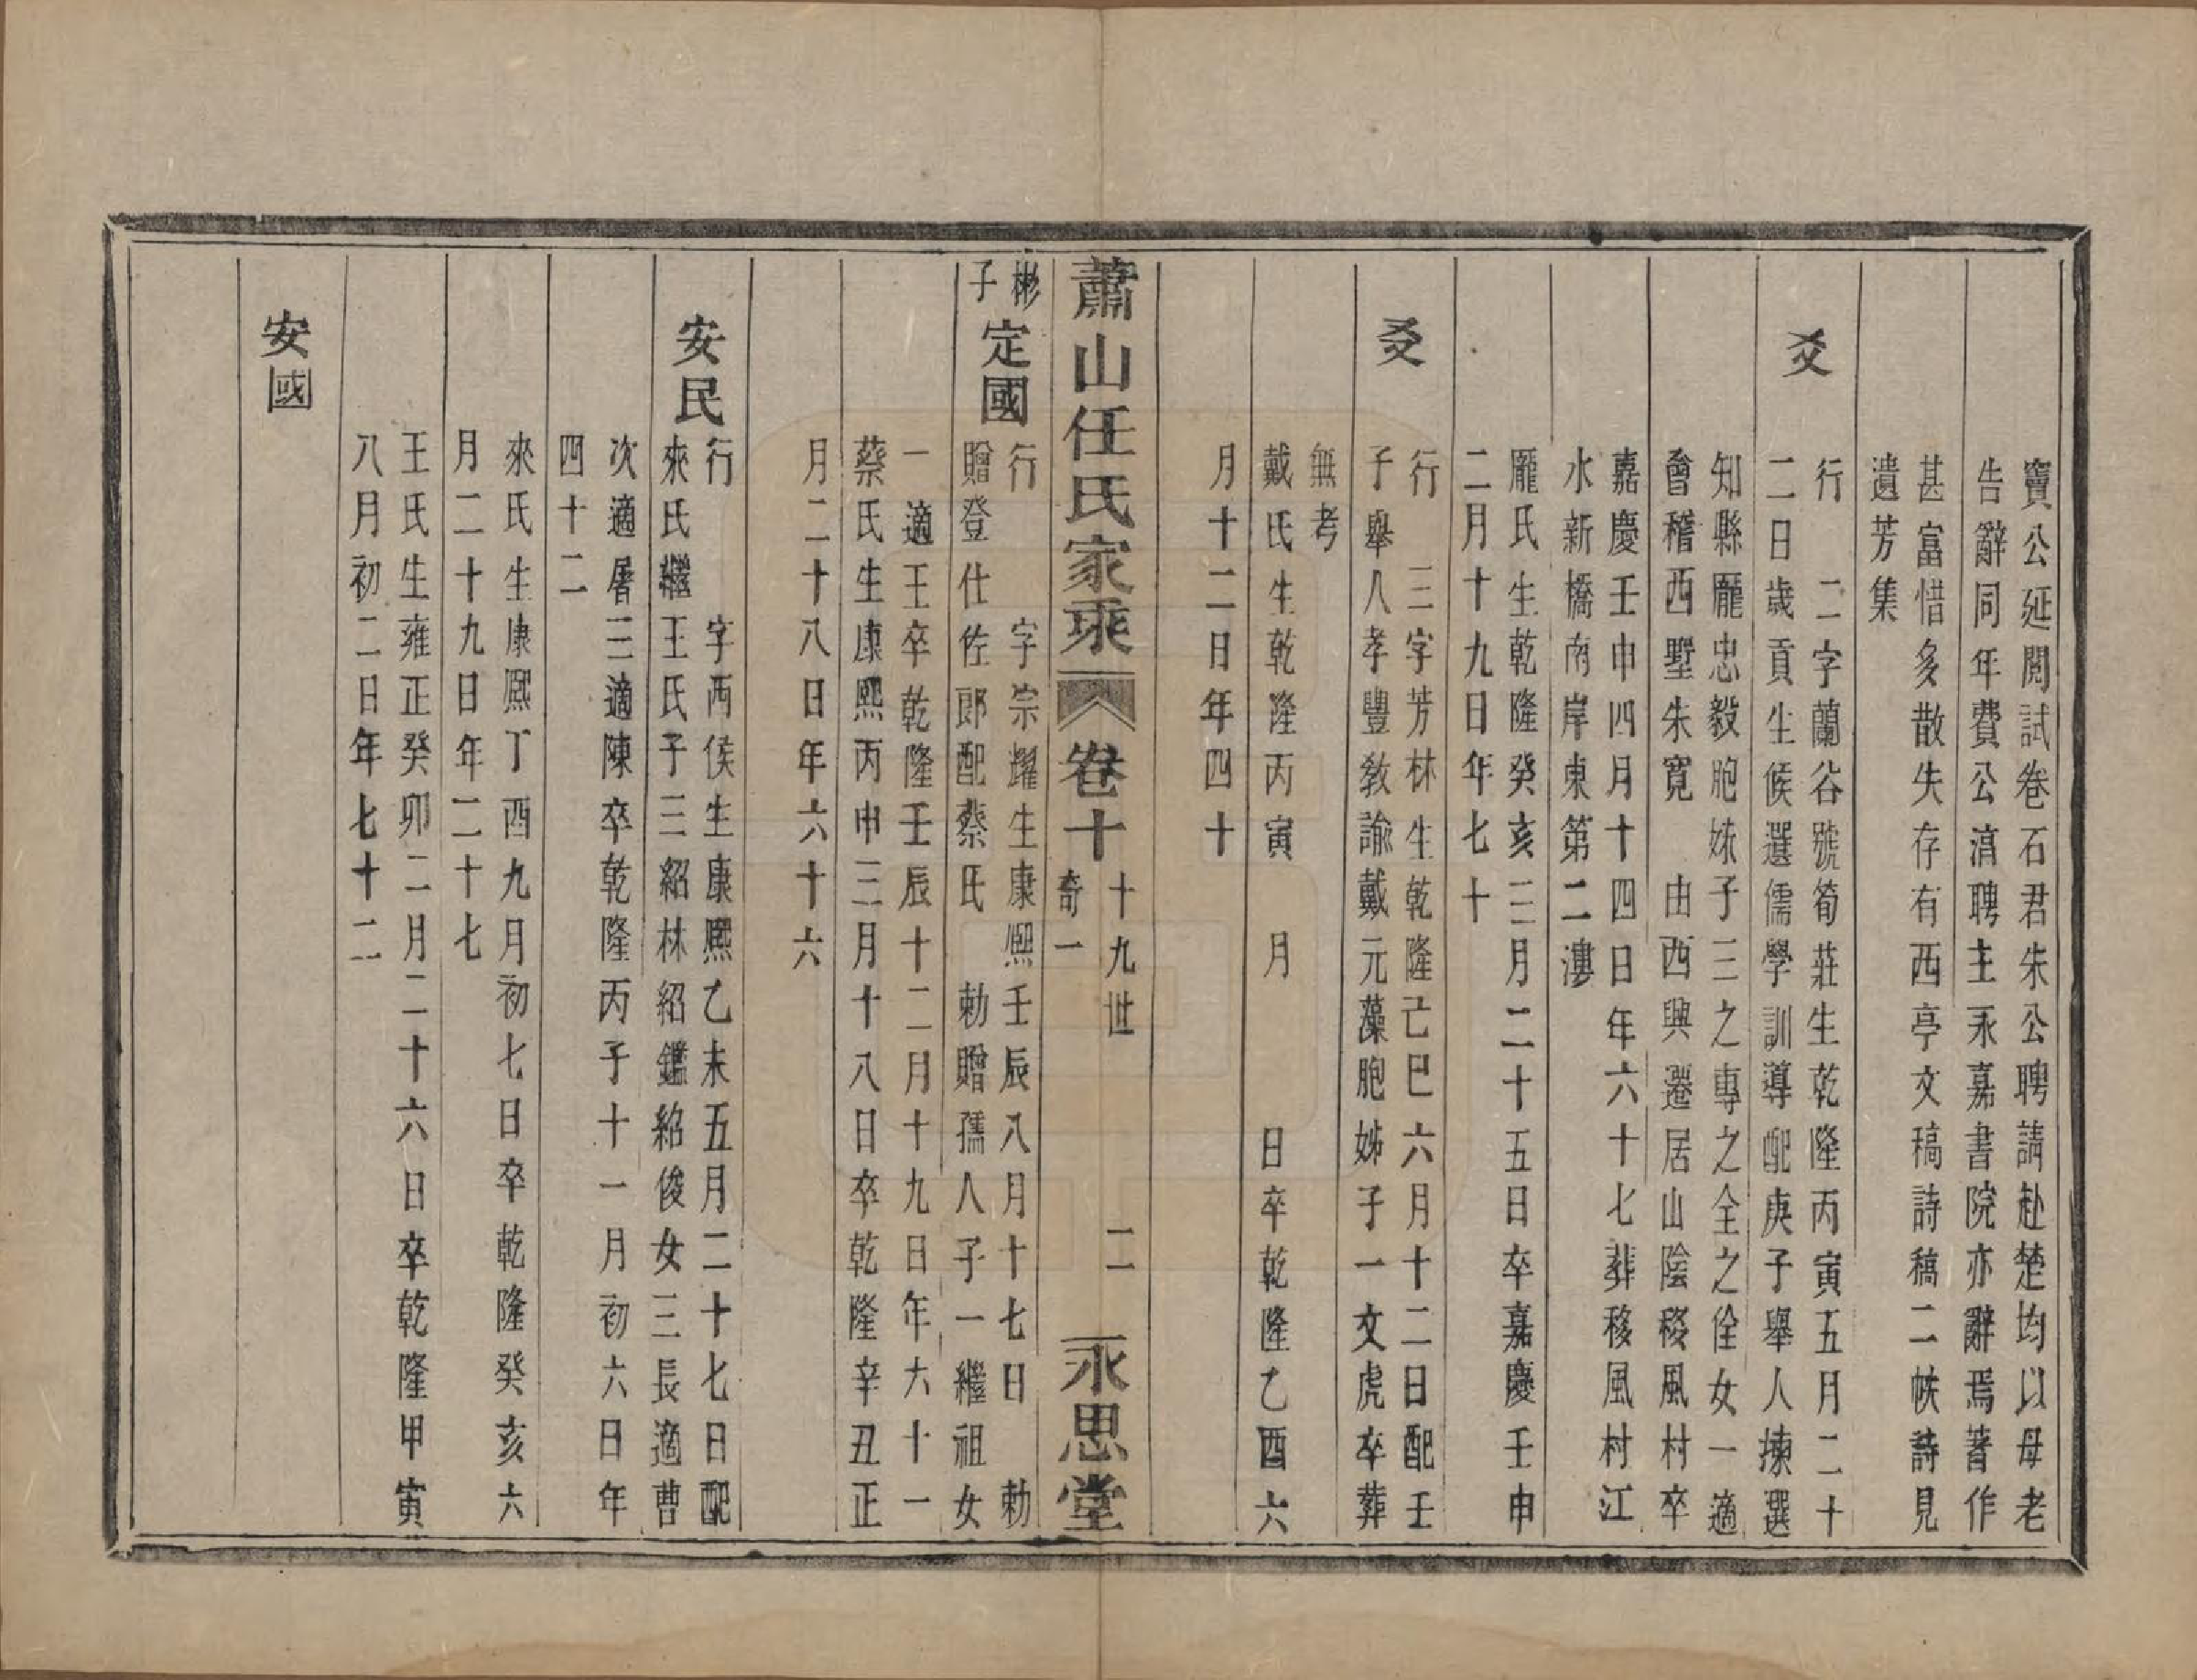 竇公延閱試卷石君朱公聘請赴楚均以母老
告辭同年費公淓聘主永嘉書院亦辭焉著作
甚富惜多散失存有西亭文稿詩稿二帙詩見
遺芳集
爻
行 二字蘭谷號荀莊生乾隆丙寅五月二十
二日歲貢生候選儒學訓導配庚子舉人揀選
知縣龎忠毅胞妹子三之專之全之佺女一適
會稽西墅朱寬 由西興遷居山陰移風村卒
嘉慶壬申四月十四日年六十七葬移風村江
水新橋南岸東第二漊
龎氏生乾隆癸亥三月二十五日卒嘉慶壬申
二月十九日年七十
爻
行 三字芳林生乾隆己巳六月十二日配壬
子舉人孝豐敎諭戴元藻胞姊子一文虎卒葬
無考
戴氏生乾隆丙寅 月 日卒乾隆乙酉六
月十二日年四十
蕭山任氏家乘 卷十 十九世 奇一 二 永思堂
彬子
定國
行 字宗耀生康熙壬辰八月十七日 勅
贈登仕佐郎配蔡氏 勅贈孺人子一繼祖女
一 適王卒乾隆壬辰十二月十九日年六十一
蔡氏生康熙丙申三月十八日卒乾隆辛丑正
月二十八日年六十六
安民
行 字西侯生康熙乙未五月二十七日配
來氏繼王氏子三紹林紹鑑紹俊女三長適曹
次適屠三適陳卒乾隆丙子十一月初六日年
四十二
來氏生康熙丁酉九月初七日卒乾隆癸亥六
月二十九日年二十七
王氏生雍正癸卯二月二十六日卒乾隆甲寅
八月初二日年七十二
安國